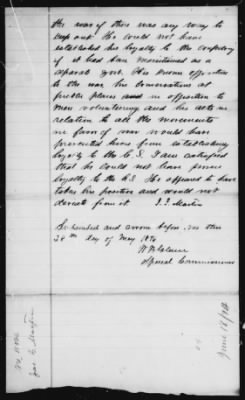 the war if there was any way to
keep out. He could not have
established his loyalty to the confedcy
if it had been maintained as a
seperate govt. His known opposition
to the war his conversations at
public places and in opposition to
men volunteering and his acts in
relation to all the movements
in favor of war would have
prevented him from establishing
loyalty to the C.S. I am satisfied
that he could not have proven
loyalty to the C.S. He appeared to have
taken his position and would not
deviate from it J. J. Martin
Subscribed and sworn before me this
28th day of May 187
Special Commissioner
Martin
June 18/